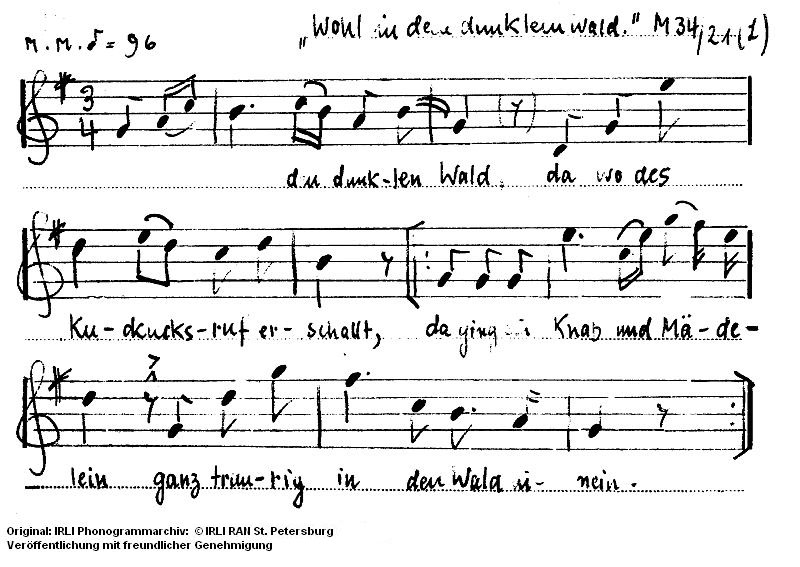 M.M. ♪ = 96
„Wohl in dem dunklem Wald." M 34/21(1)
3
4
dunk-len Wald, da wo des
Ku-ckucks-ruf er-schallt, da ging Knab und Mä-de-
lein ganz trau-rig in den Wald nein.
Original: IRLI Phonogrammarchiv: © IRLI RAN St. Petersburg
Veröffentlichung mit freundlicher Genehmigung